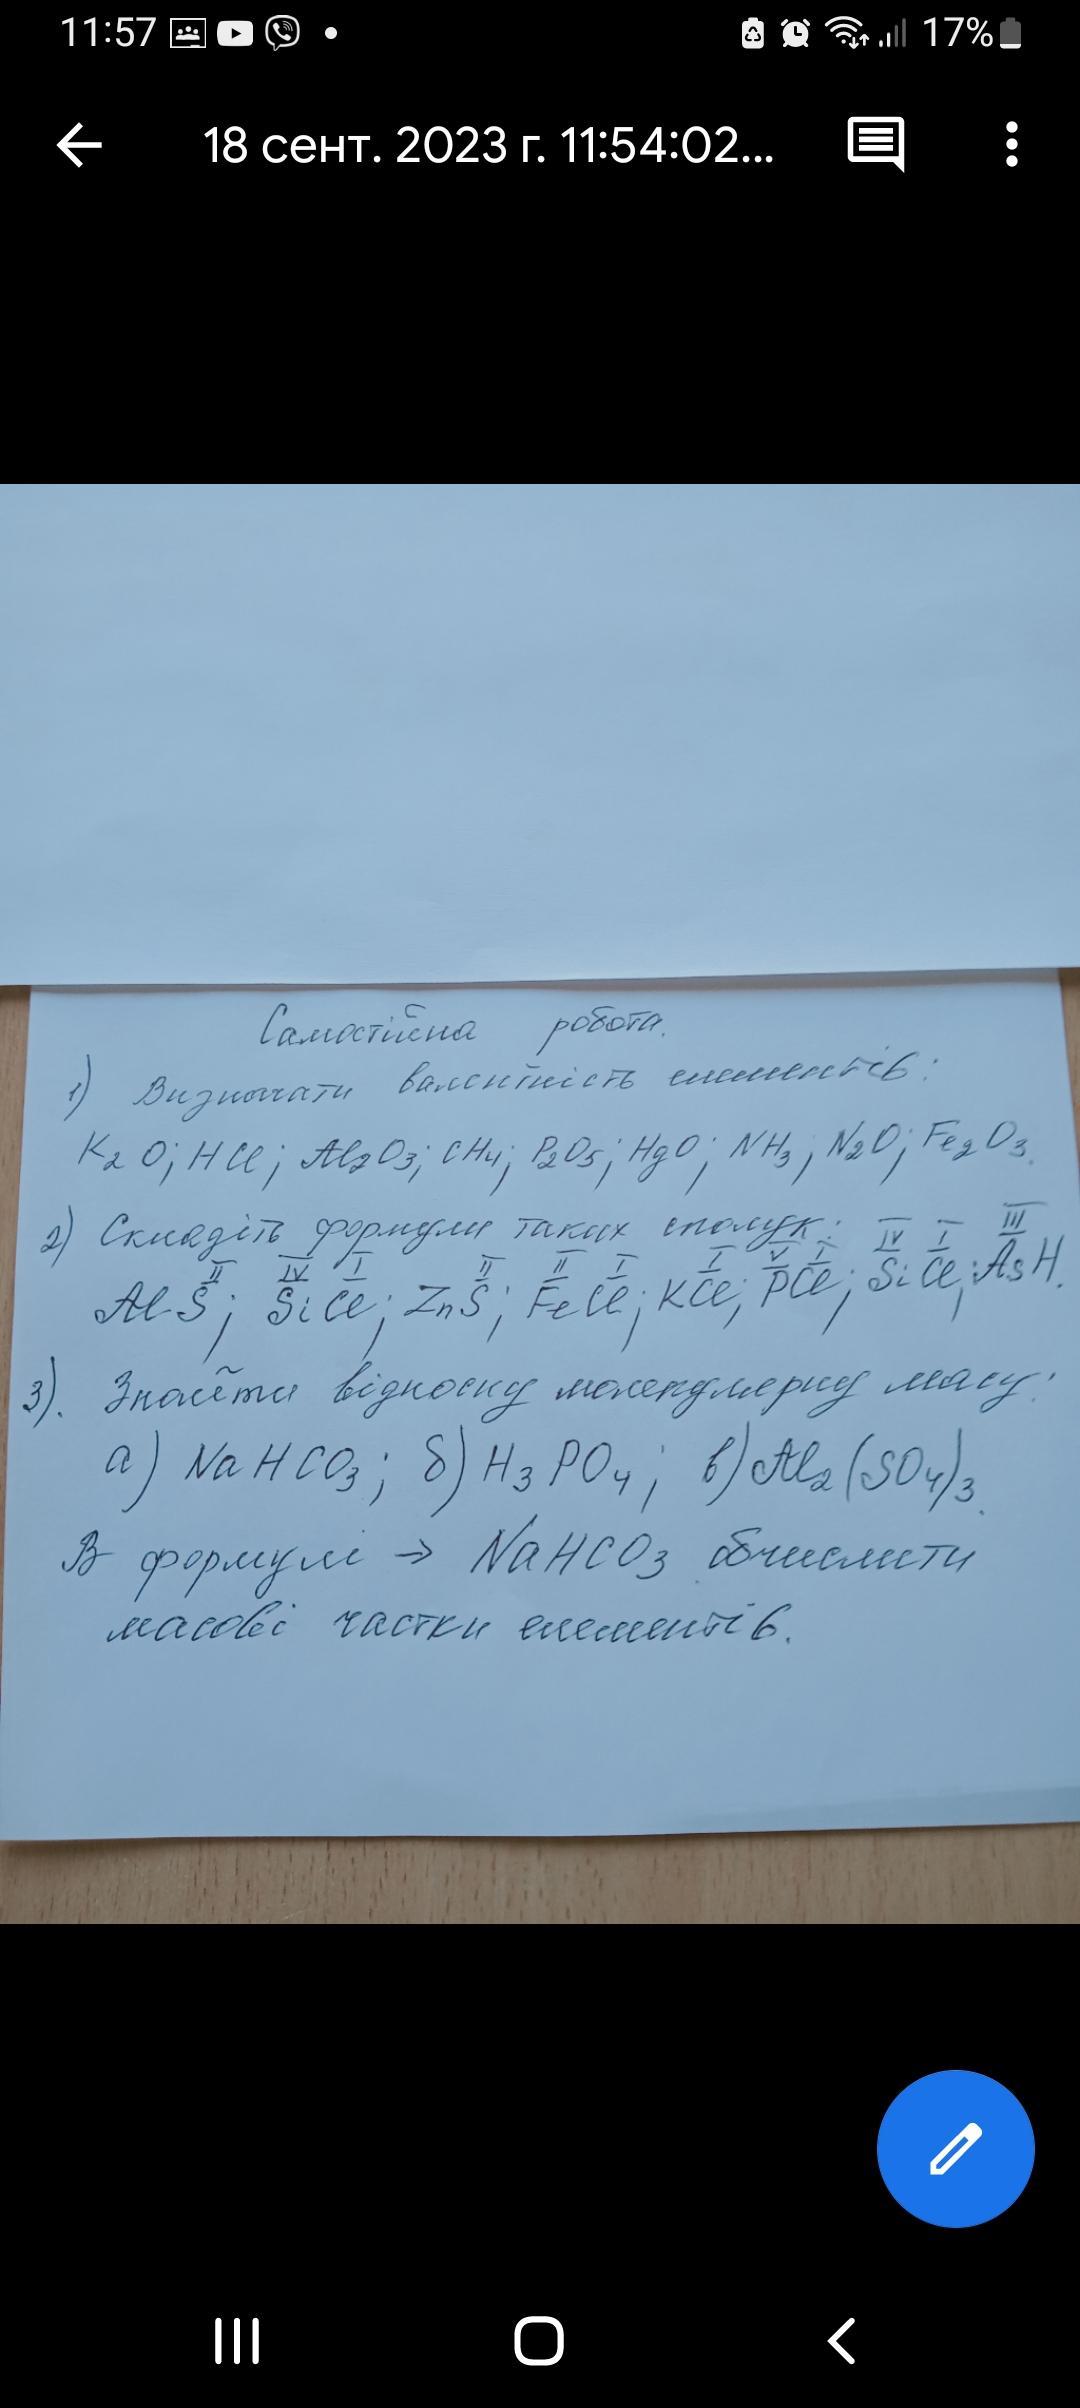 11:57 17%
18 сент. 2023 г. 11:54:02...
Самостійна робота.
1) Визначати валентність елементів:
K₂O; HCl; Al₂O₃; CH₄; P₂O₅; HgO; NH₃; N₂O; Fe₂O₃.
2) Складіть формули таких сполук:
II IV I II II I I V I IV I III
AlS; SiCl; ZnS; FeCl; KCl; PCl; SiCl; AsH.
3). Знайти відносну молекулярну масу:
а) NaHCO₃; б) H₃PO₄; в) Al₂(SO₄)₃.
В формулі → NaHCO₃ обчислити
масові частки елементів.